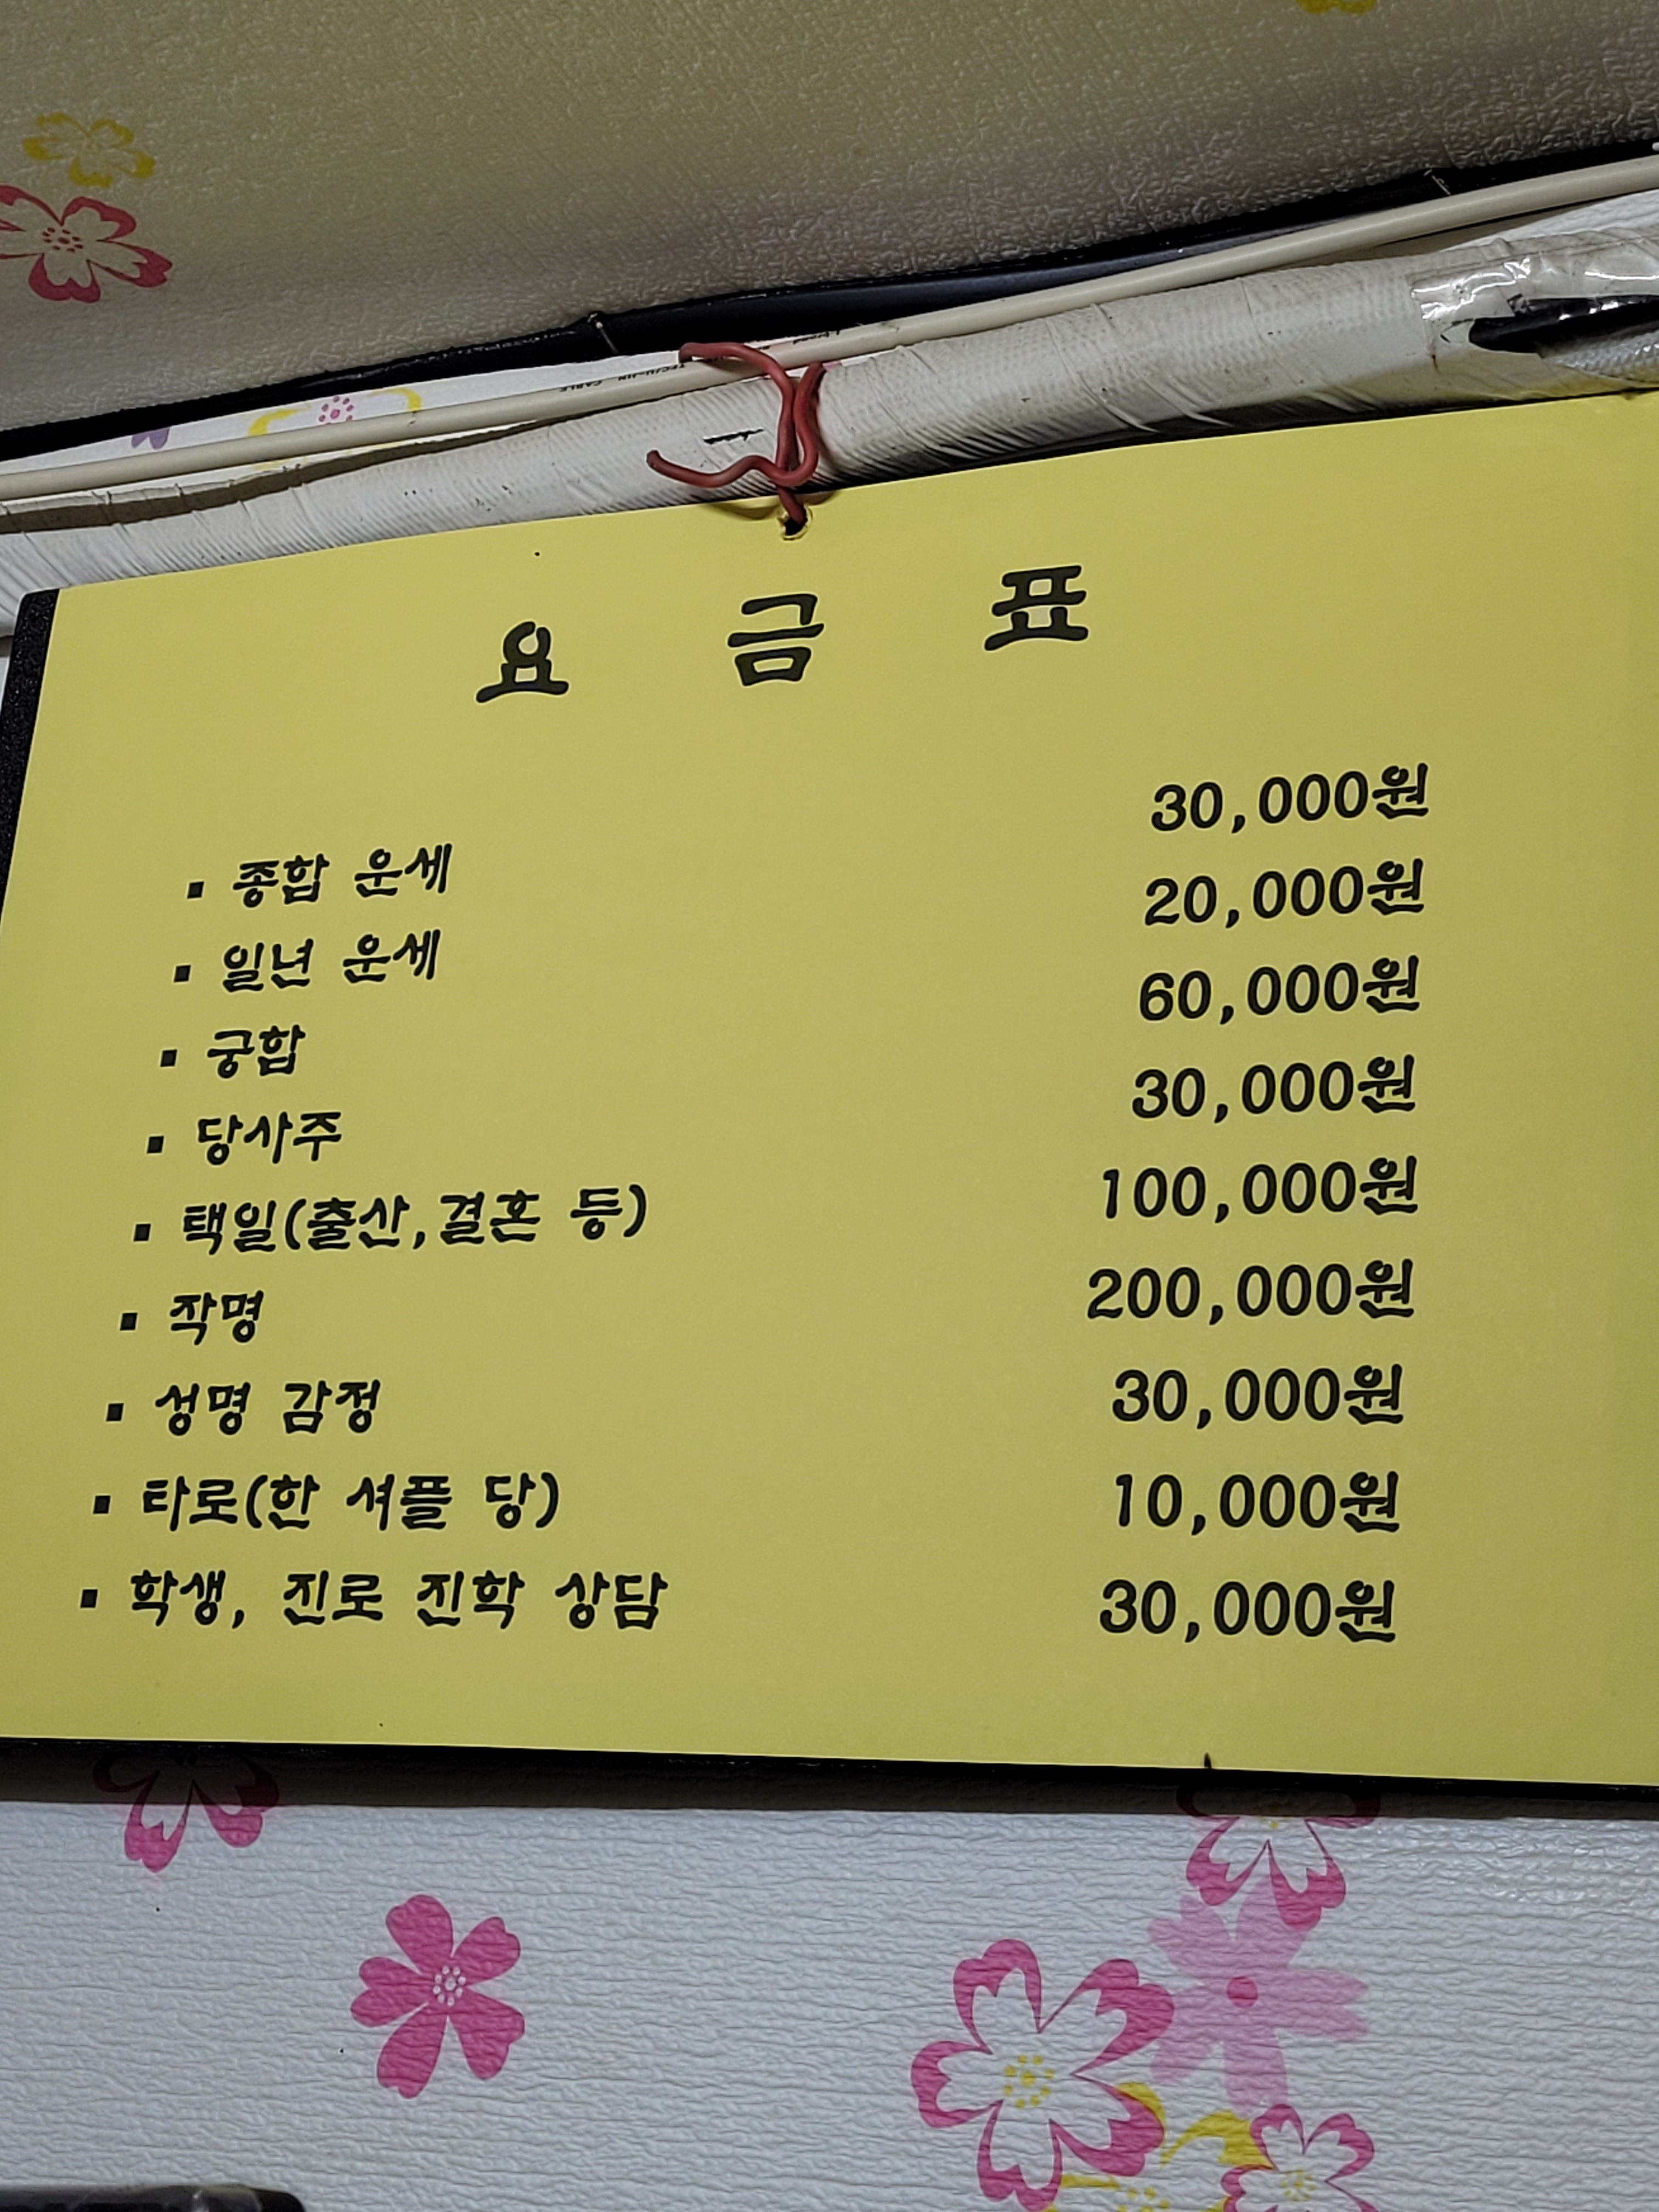 요 금 표
▪ 종합 운세 30,000원
▪ 일년 운세 20,000원
▪ 궁합 60,000원
▪ 당사주 30,000원
▪ 택일(출산,결혼 등) 100,000원
▪ 작명 200,000원
▪ 성명 감정 30,000원
▪ 타로(한 셔플 당) 10,000원
▪ 학생, 진로 진학 상담 30,000원